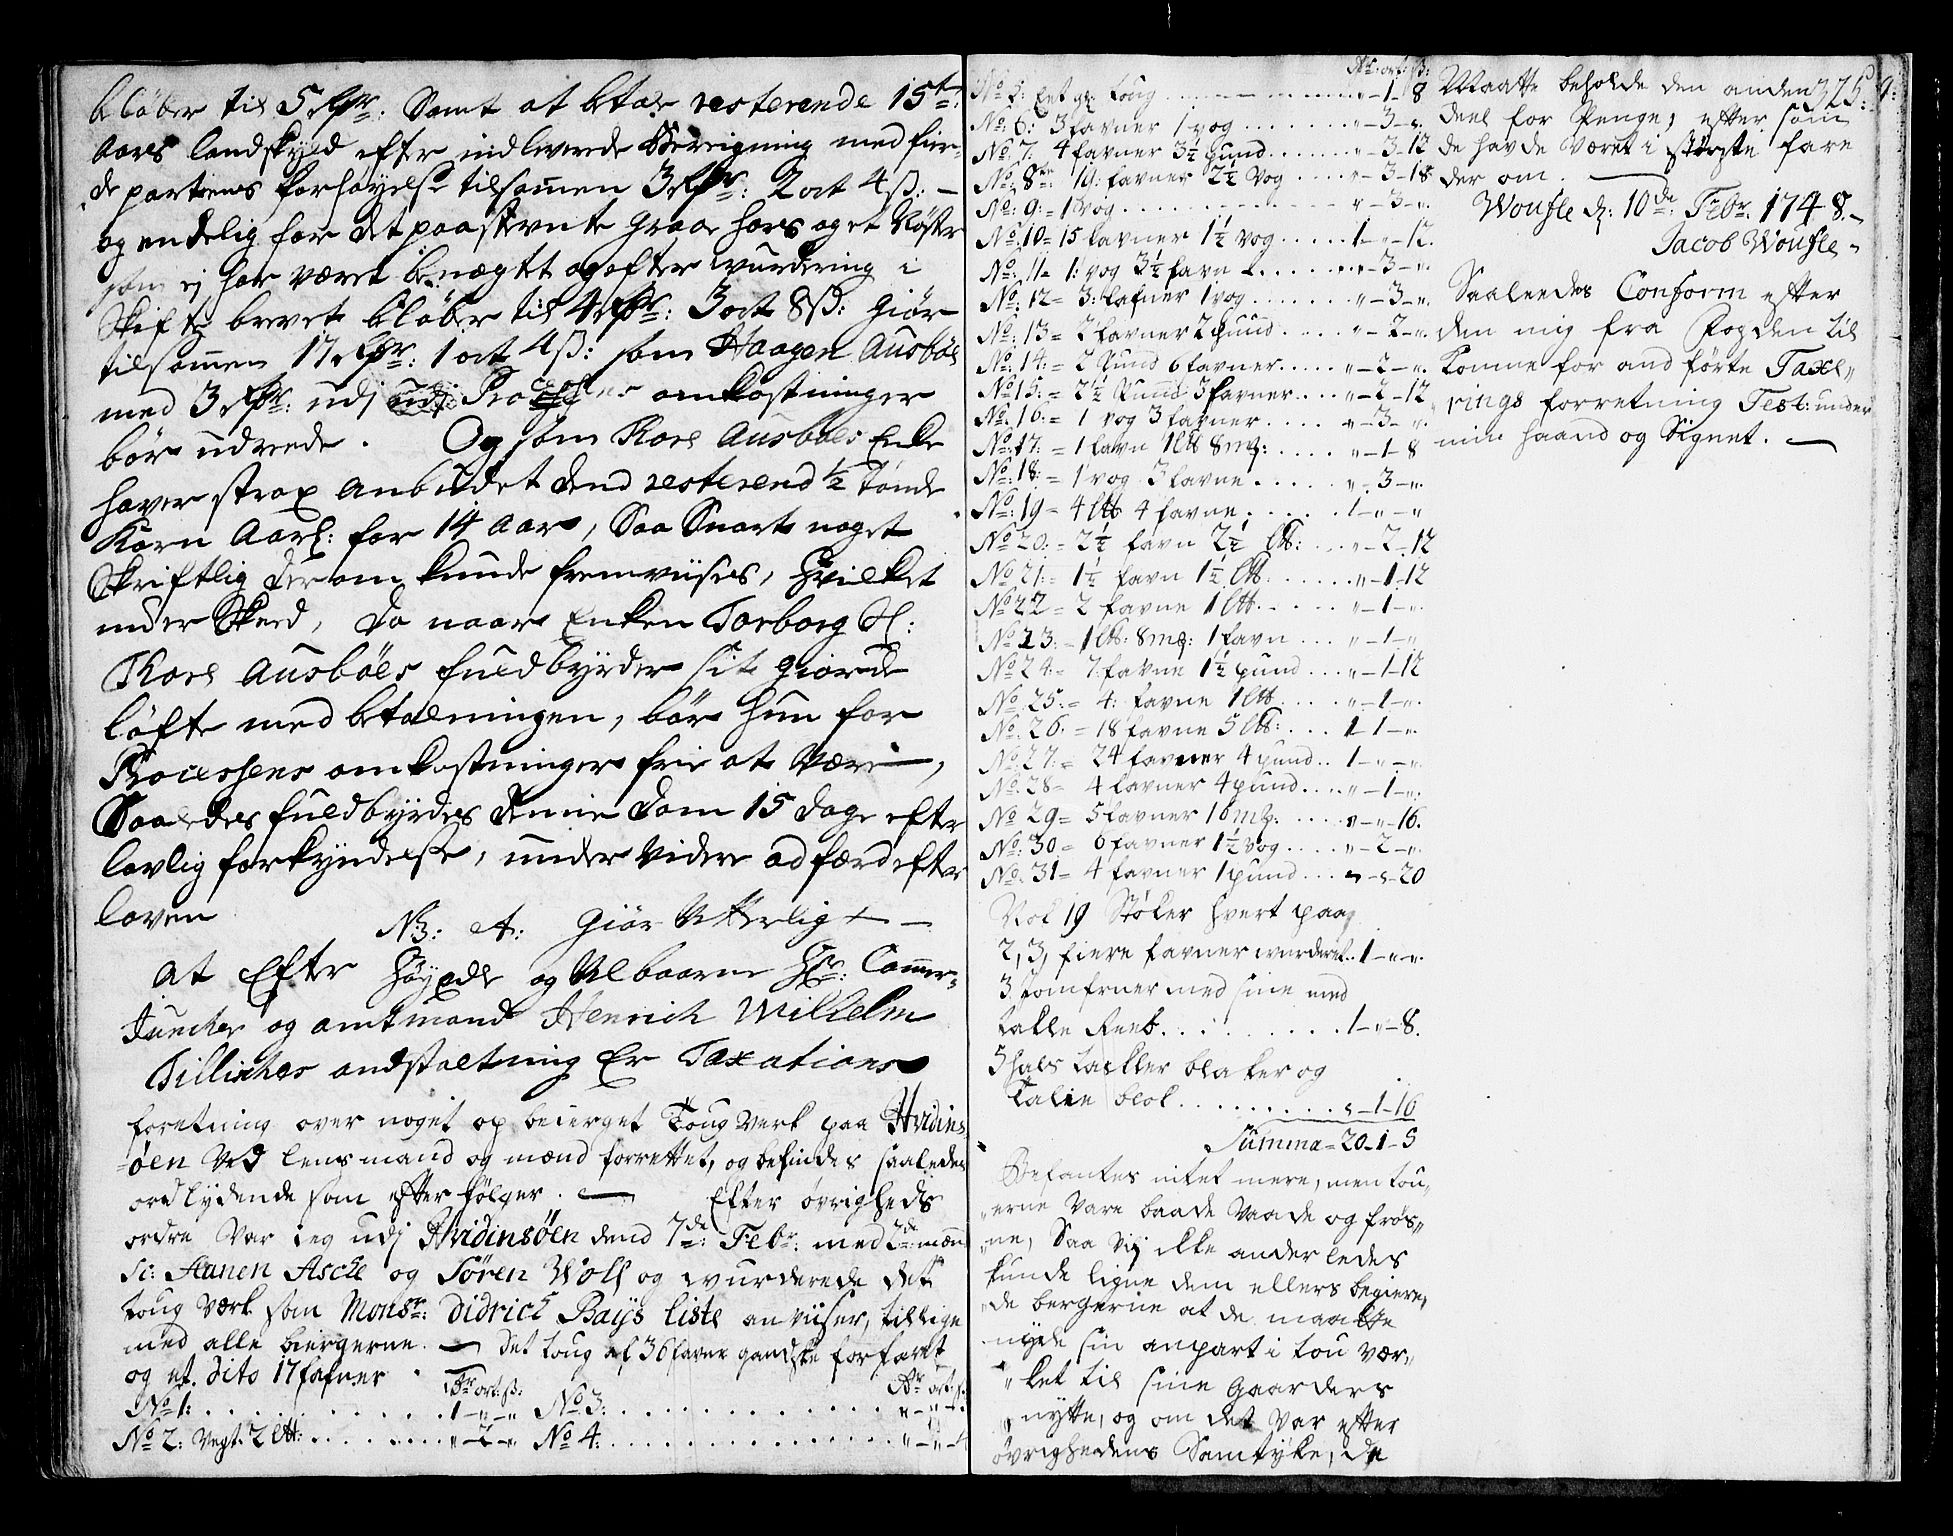 bløber til 5 rdr: Samt at betale resterende 15de
Aars landskyld efter indleverede Bereigning med fier-
de partens forhøyelse tilsamen 3 rdr: 2 ort 4 ß: –
og endelig for det paastevnte graae hors og et Nøster
som ej har været benægtet og efter wurdering i
Skifte brevet bløber til 4 rdr: 3 ort 8 ß: giør
tilsamen 17 rdr: 1 ort 4 ß: som Haagen Ausbøe
med 3 rdr: udj Processens omkostninger
bør udrede. Og som Roes Ausbøes Enke
haver strax anbudet dend resterend ½ Tønde
Korn Aarl: for 14 Aar, Saa Snart noget
Skriftlig derom kunde fremviises, hvilket
under Skeed, da naar Enken Torborg Sl:
Roes Ausbøes fuldbyrder sit giorde
løfte med betalningen, bør hun for
Processens omkostninger frie at være –,
Saaledes fuldbyrdes denne dom 15 dage efter
lovlig forkyndelse, under videre adfærd efter
loven
N3: A: Giør Vitterlig – –
at Efter høyædle og Velbaarne Hr: Camer-
Juncker og amtmand Henrich Wilhelm
Tillisches andstaltning Er Taxations
foretning over noget op bierget Toug verk paa Hvidins
øen Ved lensmand og mænd forrettet, og befindes saaledes
ordlydende som efter følger. – Efter øvrigheds
ordre Var ieg udj Hvidinsøen dend 7de: Febr: med 2de mænd
sc: Hanen Asche og Søren Wolf og wurderede det
toug værk som Monsr: Didrich Bays liste anviiser, tillige
med alle biergerne. – Det toug af 36 favne gandske forfaret
og et dito 17 fafner
Rdr ort: ß: Rdr ort ß:
No 1: . . . . 1 – „ – „ No 3: . . . .
No 2: Vegt. 2 lb: . . . . „ – 2 – „ No 4: . . . .
Rdr: ort: ß:
No 5: Eet gl: toug . . . . „ – 1 – 8
No: 6: 3 favner 1 vog . . . . „ – 3 – „
No 7: 4 favner 3½ pund . . . . „ – 3 – 12
No: 8te: 19: favner 2½ Vog . . . . „ – 3 – 18
No: 9: = 1 Vog . . . . „ – 3 – „
No: 10 = 15 favner 1½ vog . . . . 1 – „ – 12.
No: 11 = 1: vog 3½ favn . . . . „ – 3 – „
No: 12 = 3: fafner 1 vog . . . . „ – 3 – „
No: 13 = 2 favner 2 pund . . . . „ – 2 – „
No: 14: = 2 pund 6 favner . . . . „ – 2 – „
No 15: = 2½ Pund 3 farner . . . . „ – 2 – 12
No: 16: = 1 vog 3 favner . . . . „ – 3 – „
No: 17: = 1 favn 1 lb 8 mz: . . . . „ – 1 – 8
No: 18: = 1 vog 3 favne . . . . „ – 3 – „
No: 19 = 4 lb 4 favne . . . . 1 – „ – „
No 20: = 2½ favn 2½ lb: . . . . „ – 2 – 12
No: 21: = 1½ favn 1½ lb . . . . „ – 1 – 12
No 22 = 2 favne 1 lb . . . . „ – 1 – „
No 23: = 1 lb: 8 mz: 1 favn . . . „ – 1 – „
No 24: = 7: favne 1½ pund . . . „ – 1 – 12
No. 25: = 4: favne 1 lb . . . . „ – 1 – „
No. 26. = 18 favne 5 lb: . . . . 1 – 1 – „
No. 27: = 24 favner 4 pund . . 1 – „ – „
No: 28 = 4 favner 4 pund . . . . „ – 1 – „
No 29 = 5 favner 16 mz: . . . . „ – „ – 16.
No: 30 = 6 favner 1½ vog . . . . „ – 2 – „
No. 31 = 4 favner 1 pund . . . „ – „ – 20
Nok 19 Støker hvert paa
2, 3, fiere favner wurderet . . 1 – „ – „
3 Jomfruer med sine med
takle Reeb . . . . 1 – „ – 8.
5 hals taekler blaker og
Talie blok . . . . „ – 1 – 16
Summa = 20 – 1 – 5
Befantes intet mere, men tou-
erne Vare baade Vaade og frøs-
ne, Saa vij ikke anderledes
kunde ligne dem ellers begiere-
de bergerne at de maatte
nyde sin anpart i tou vær-
ket til sine Gaarders
nytte, og om det Var efter
øvrighedens Samtyke, de
325:
9:
Maatte beholde den anden
deel for Penge, efter som
de havde været i største fare
der om. –
Woufle d: 10de: Febr: 1748. –
Jacob Woufle –
Saaledes Conform efter
den mig fra Fogden til
komne for and førte Taxe-
rings forretning Test: under
min haand og Signet. –